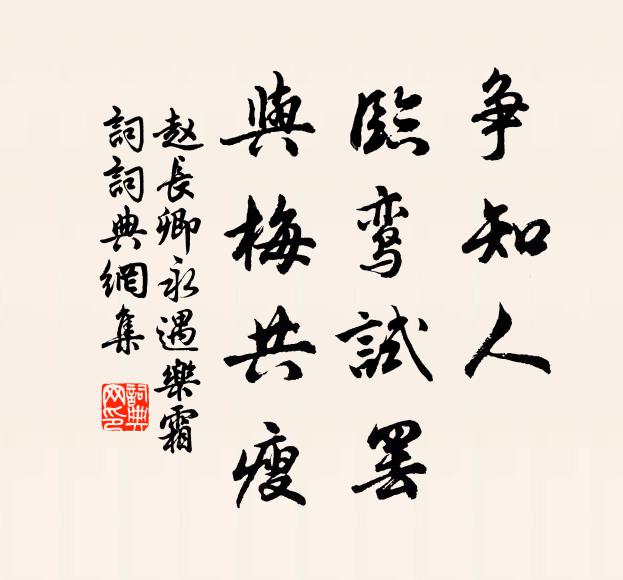 争知人
臨鸾試罢
與梅共瘦
赵長卿永遇樂霜
詞詞典網集
詞典网印